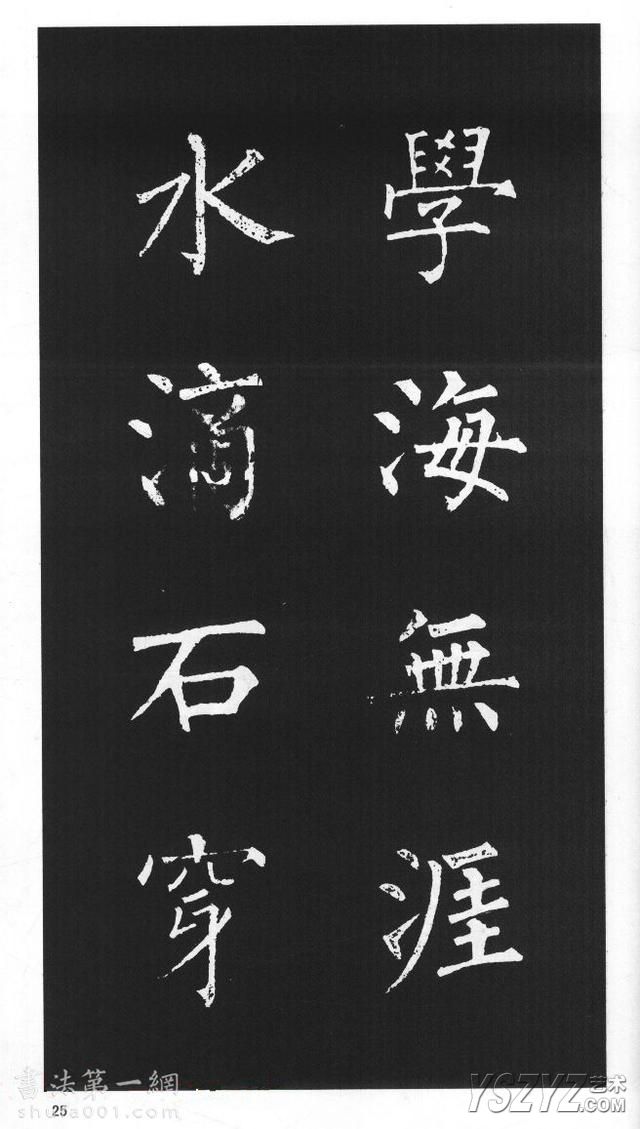 學海無涯
水滴石穿
書法第一網
shufa001.com
YSZYZ艺术.COM
25